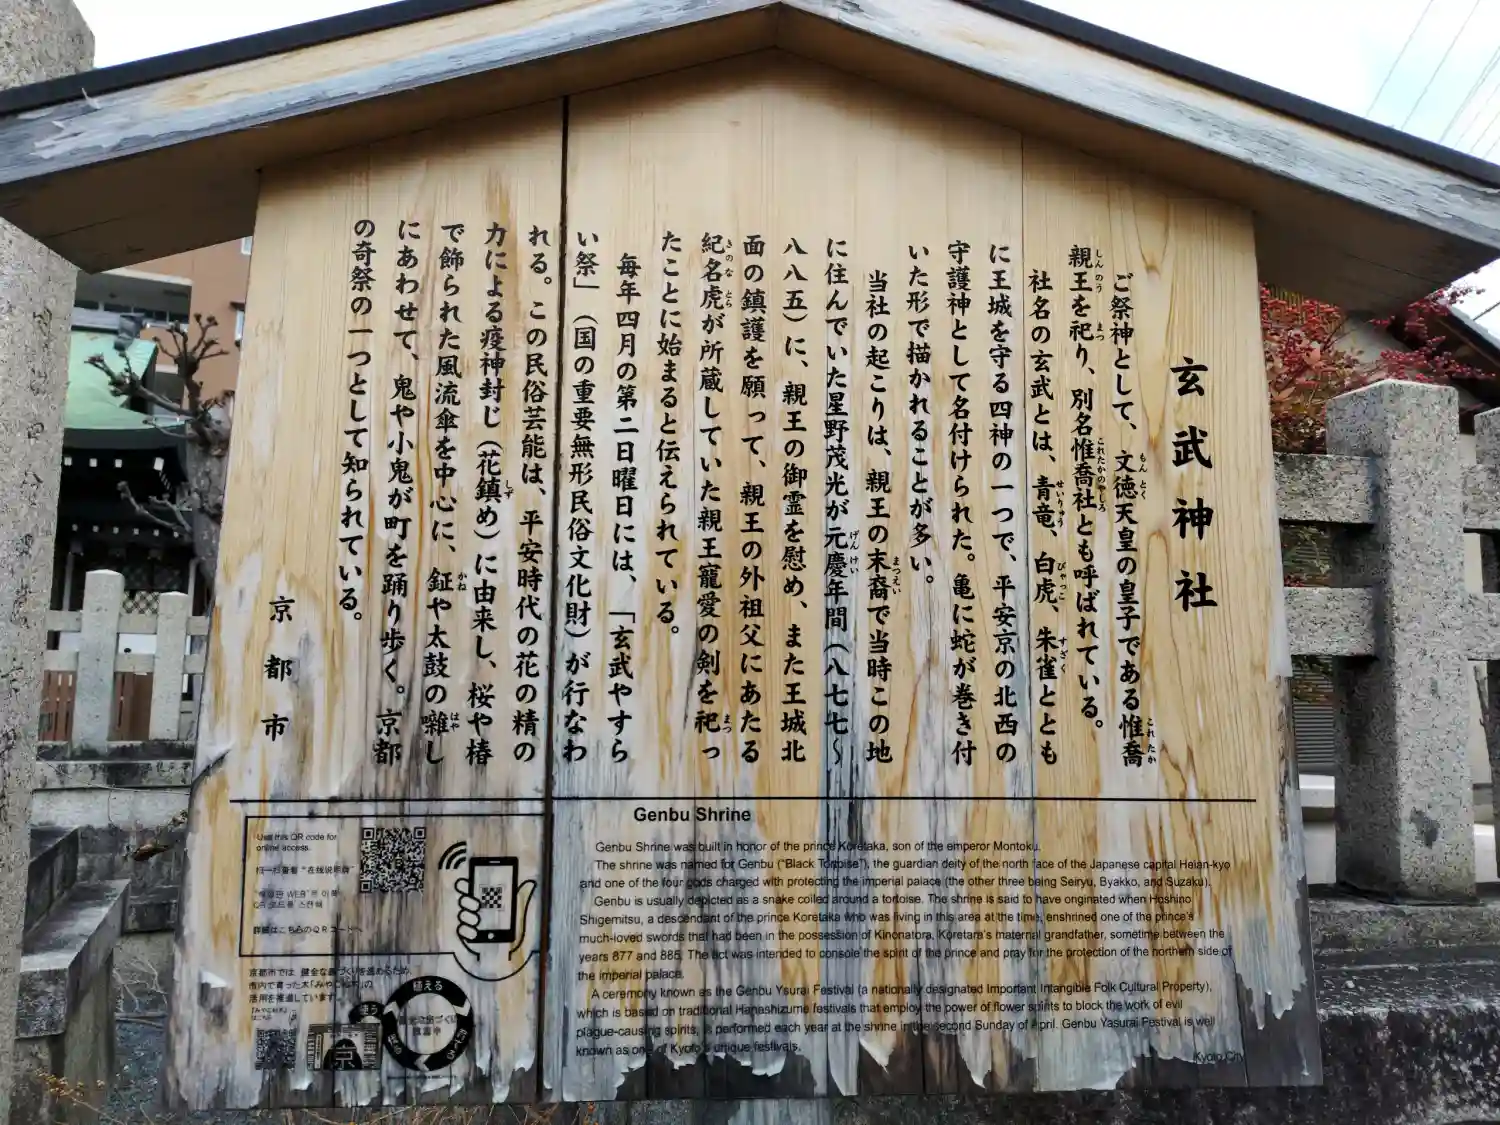 玄武神社
ご祭神として、文徳天皇の皇子である惟喬
親王を祀り、別名惟喬社とも呼ばれている。
社名の玄武とは、青竜、白虎、朱雀ととも
に王城を守る四神の一つで、平安京の北西の
守護神として名付けられた。亀に蛇が巻き付
いた形で描かれることが多い。
当社の起こりは、親王の末裔で当時この地
に住んでいた星野茂光が元慶年間（八七七〜
八八五）に、親王の御霊を慰め、また王城北
面の鎮護を願って、親王の外祖父にあたる
紀名虎が所蔵していた親王寵愛の剣を祀っ
たことに始まると伝えられている。
毎年四月の第二日曜日には、「玄武やすら
い祭」（国の重要無形民俗文化財）が行なわ
れる。この民俗芸能は、平安時代の花の精の
力による疫神封じ（花鎮め）に由来し、桜や椿
で飾られた風流傘を中心に、鉦や太鼓の囃し
にあわせて、鬼や小鬼が町を踊り歩く。京都
の奇祭の一つとして知られている。
京都市
Genbu Shrine
Genbu Shrine was built in honor of the prince Koretaka, son of the emperor Montoku.
The shrine was named for Genbu ("Black Tortoise"), the guardian deity of the north face of the Japanese capital Heian-kyo
and one of the four gods charged with protecting the imperial palace (the other three being Seiryu, Byakko, and Suzaku).
Genbu is usually depicted as a snake coiled around a tortoise. The shrine is said to have originated when Hoshino
Shigemitsu, a descendant of the prince Koretaka who was living in this area at the time, enshrined one of the prince's
much-loved swords that had been in the possession of Kinonatora, Koretara's maternal grandfather, sometime between the
years 877 and 885. The act was intended to console the spirit of the prince and pray for the protection of the northern side of
the imperial palace.
A ceremony known as the Genbu Ysurai Festival (a nationally designated Important Intangible Folk Cultural Property),
which is based on traditional Hanashizume festivals that employ the power of flower spirits to block the work of evil
plague-causing spirits, is performed each year at the shrine in the second Sunday of April. Genbu Yasurai Festival is well
known as one of Kyoto's unique festivals.
Kyoto City
Use this QR code for
online access.
扫一扫查看 "在线说明牌"
詳細はこちらのQRコードへ
植える